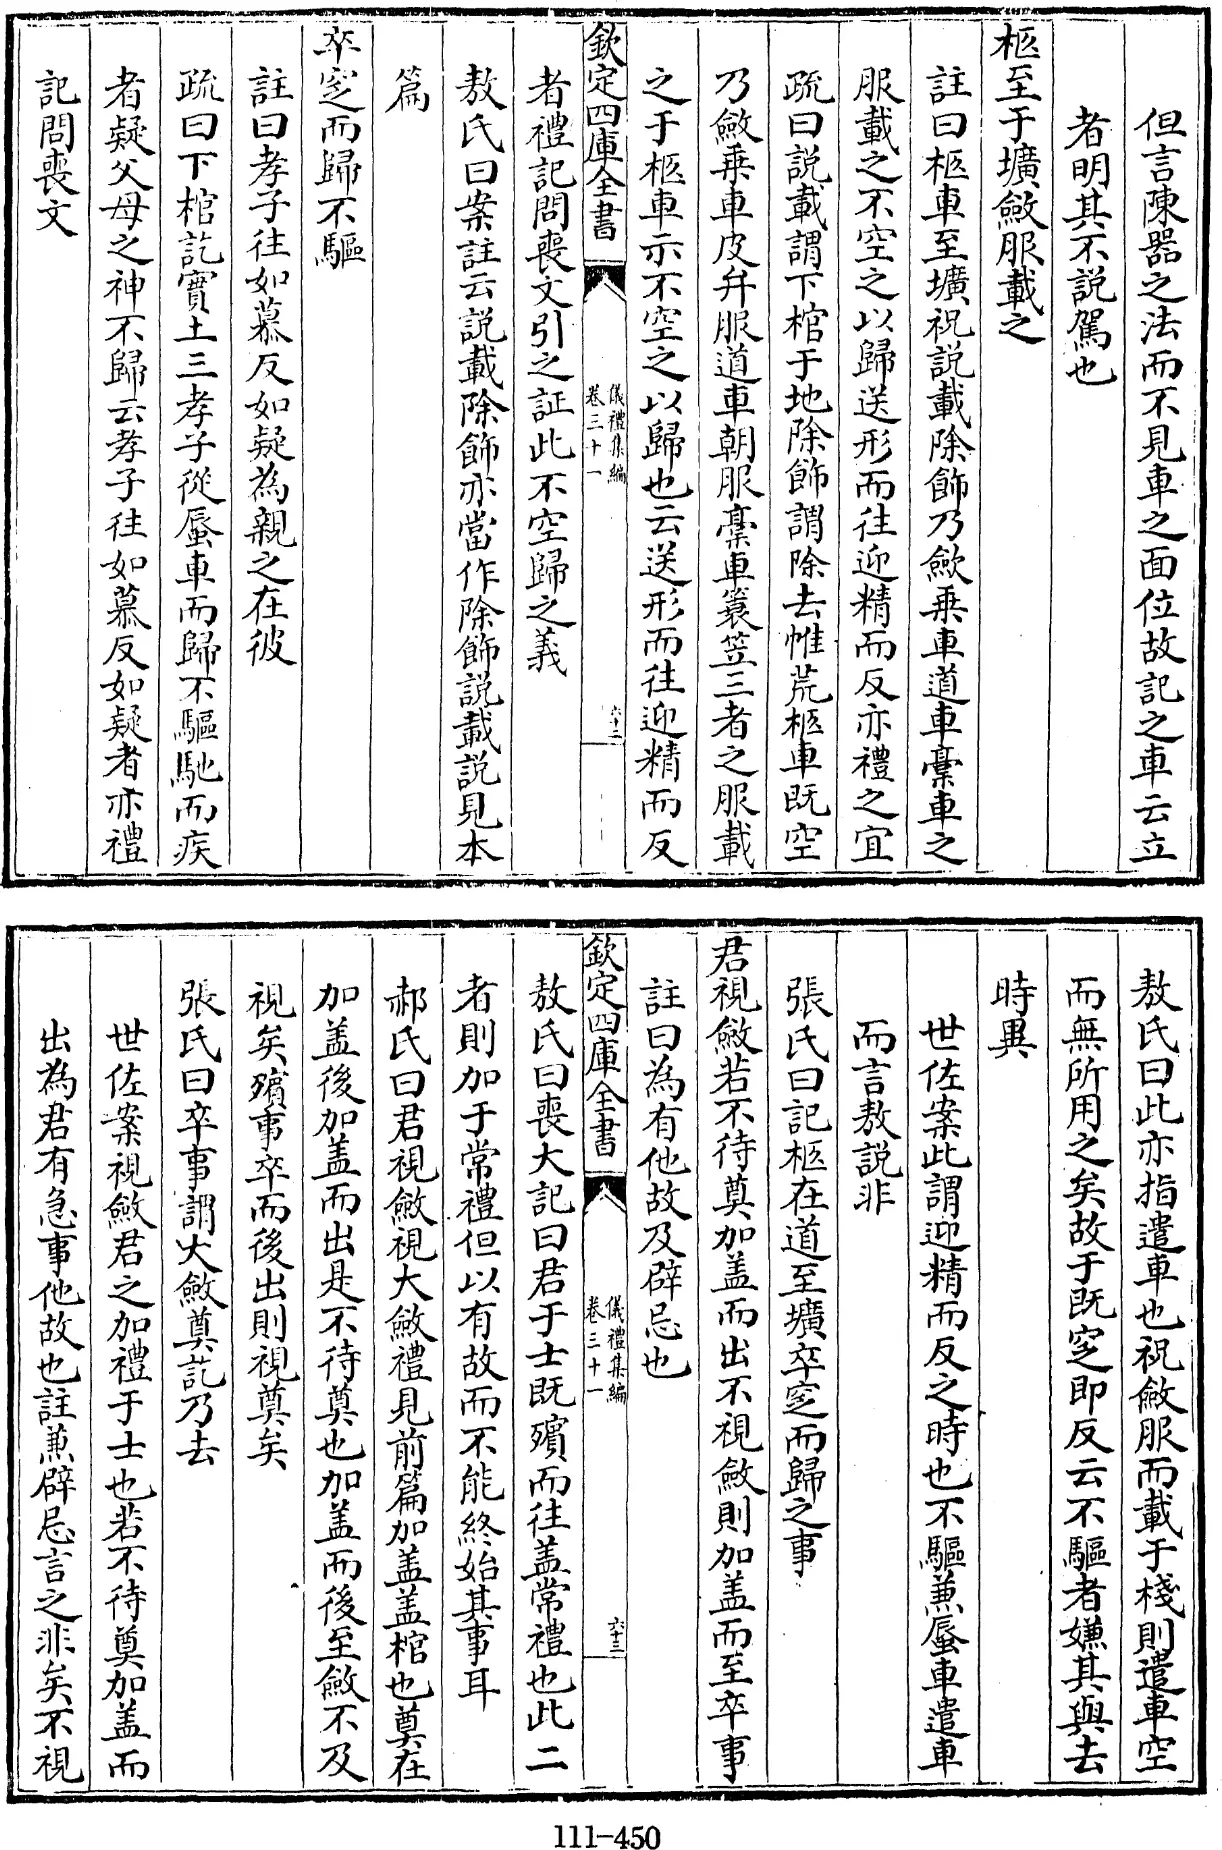 但言陳器之法而不見車之面位故記之車云立
者明其不説駕也
柩至于壙斂服載之
註曰柩車至壙祝説載除飾乃斂乗車道車槀車之
服載之不空之以歸送形而往迎精而反亦禮之宜
疏曰説載謂下棺于地除飾謂除去帷荒柩車既空
乃斂乗車皮弁服道車朝服槀車簑笠三者之服載
之于柩車示不空之以歸也云送形而往迎精而反
欽定四庫全書
儀禮集編
卷三十一
六十二
者禮記問喪文引之証此不空歸之義
敖氏曰案註云説載除飾亦當作除飾説載説見本
篇
卒窆而歸不驅
註曰孝子往如慕反如疑為親之在彼
疏曰下棺訖實土三孝子從蜃車而歸不驅馳而疾
者疑父母之神不歸云孝子往如慕反如疑者亦禮
記問喪文
敖氏曰此亦指遣車也祝斂服而載于棧則遣車空
而無所用之矣故于既窆即反云不驅者嫌其與去
時異
世佐案此謂迎精而反之時也不驅兼蜃車遣車
而言敖説非
張氏曰記柩在道至壙卒窆而歸之事
君視斂若不待奠加盖而出不視斂則加盖而至卒事
註曰為有他故及辟忌也
欽定四庫全書
儀禮集編
卷三十一
六十三
敖氏曰喪大記曰君于士既殯而往盖常禮也此二
者則加于常禮但以有故而不能終始其事耳
郝氏曰君視斂視大斂禮見前篇加盖盖棺也奠在
加盖後加盖而出是不待奠也加盖而後至斂不及
視矣殯事卒而後出則視奠矣
張氏曰卒事謂大斂奠訖乃去
世佐案視斂君之加禮于士也若不待奠加盖而
出為君有急事他故也註兼辟忌言之非矣不視
111-450